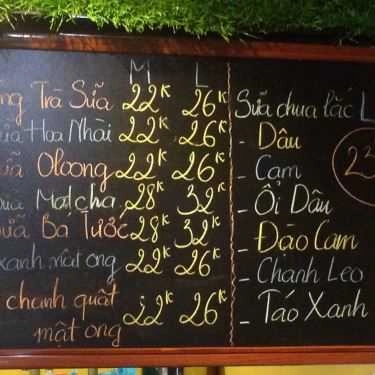 M L
Trà Sữa 22K 26K
Hoa Nhài 22K 26K
Oloong 22K 26K
Matcha 28K 32K
Bá Tước 28K 32K
xanh mật ong 22K 26K
chanh quất
mật ong 22K 26K
Sữa chua lắc L
- Dâu
- Cam
- Ổi Dâu
- Đào Cam
- Chanh Leo
- Táo Xanh